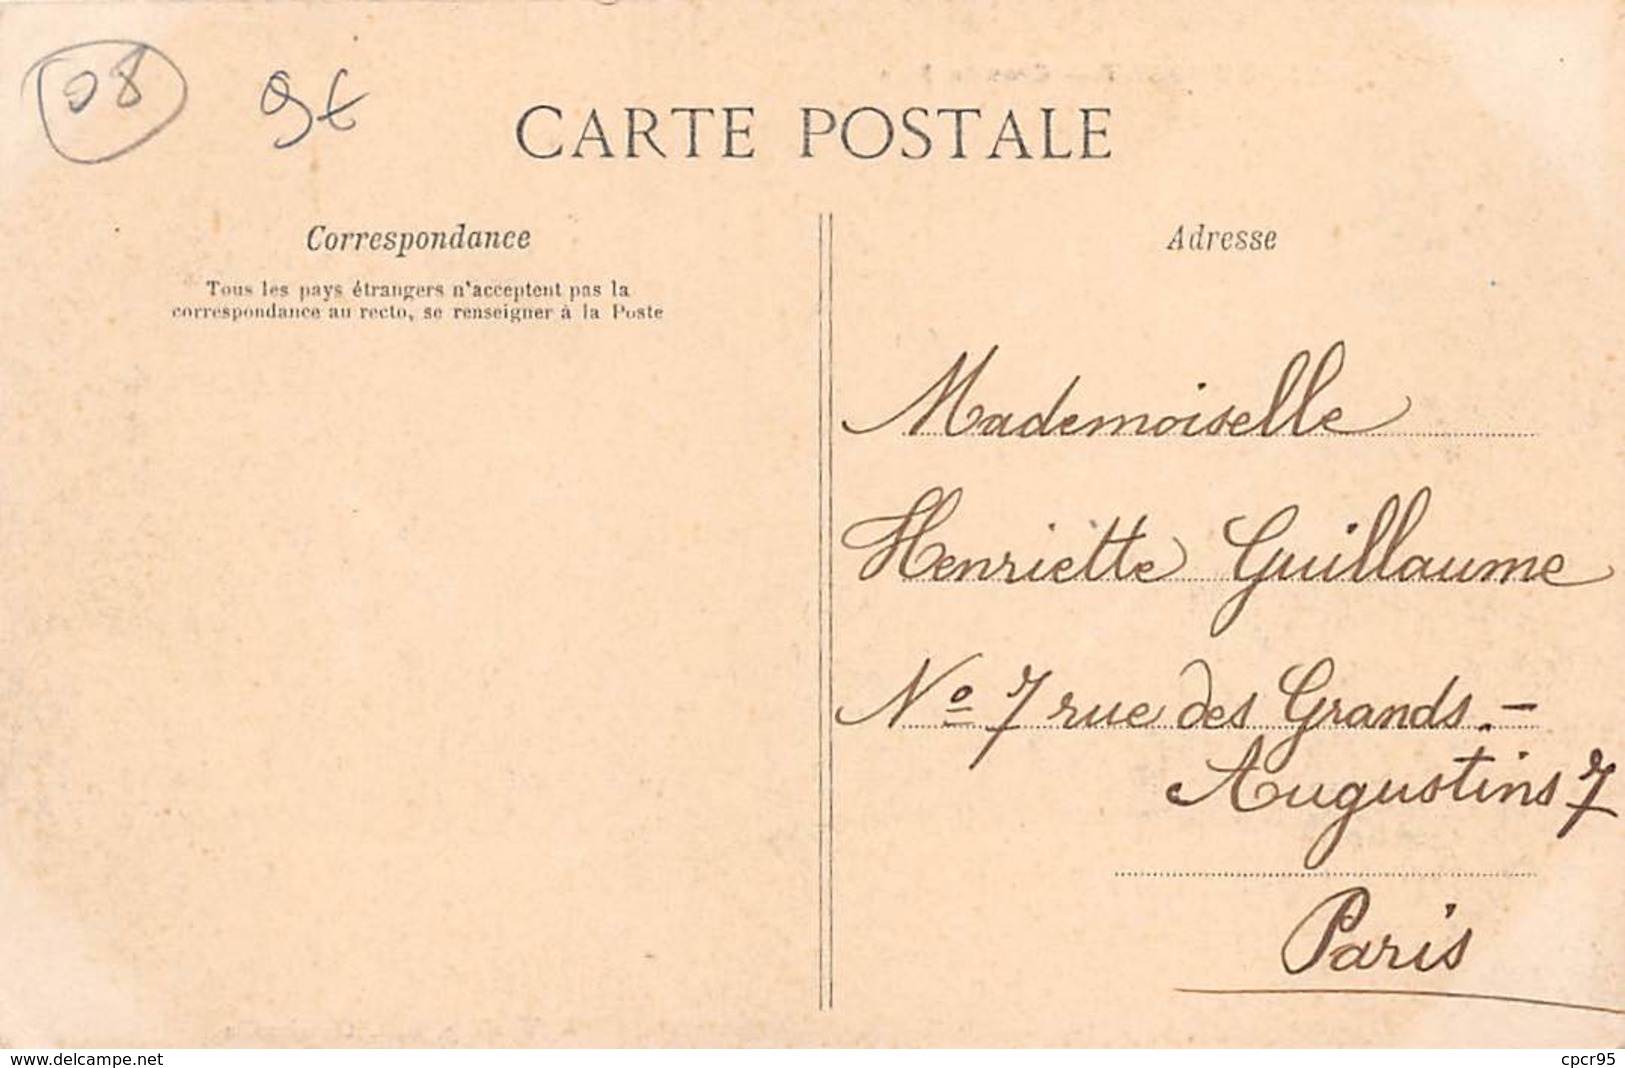 08
CARTE POSTALE
Correspondance
Tous les pays étrangers n'acceptent pas la
correspondance au recto, se renseigner à la Poste
Adresse
Mademoiselle
Henriette Guillaume
Nº 7 rue des Grands.-
Augustins 7
Paris
www.delcampe.net
cpcr95